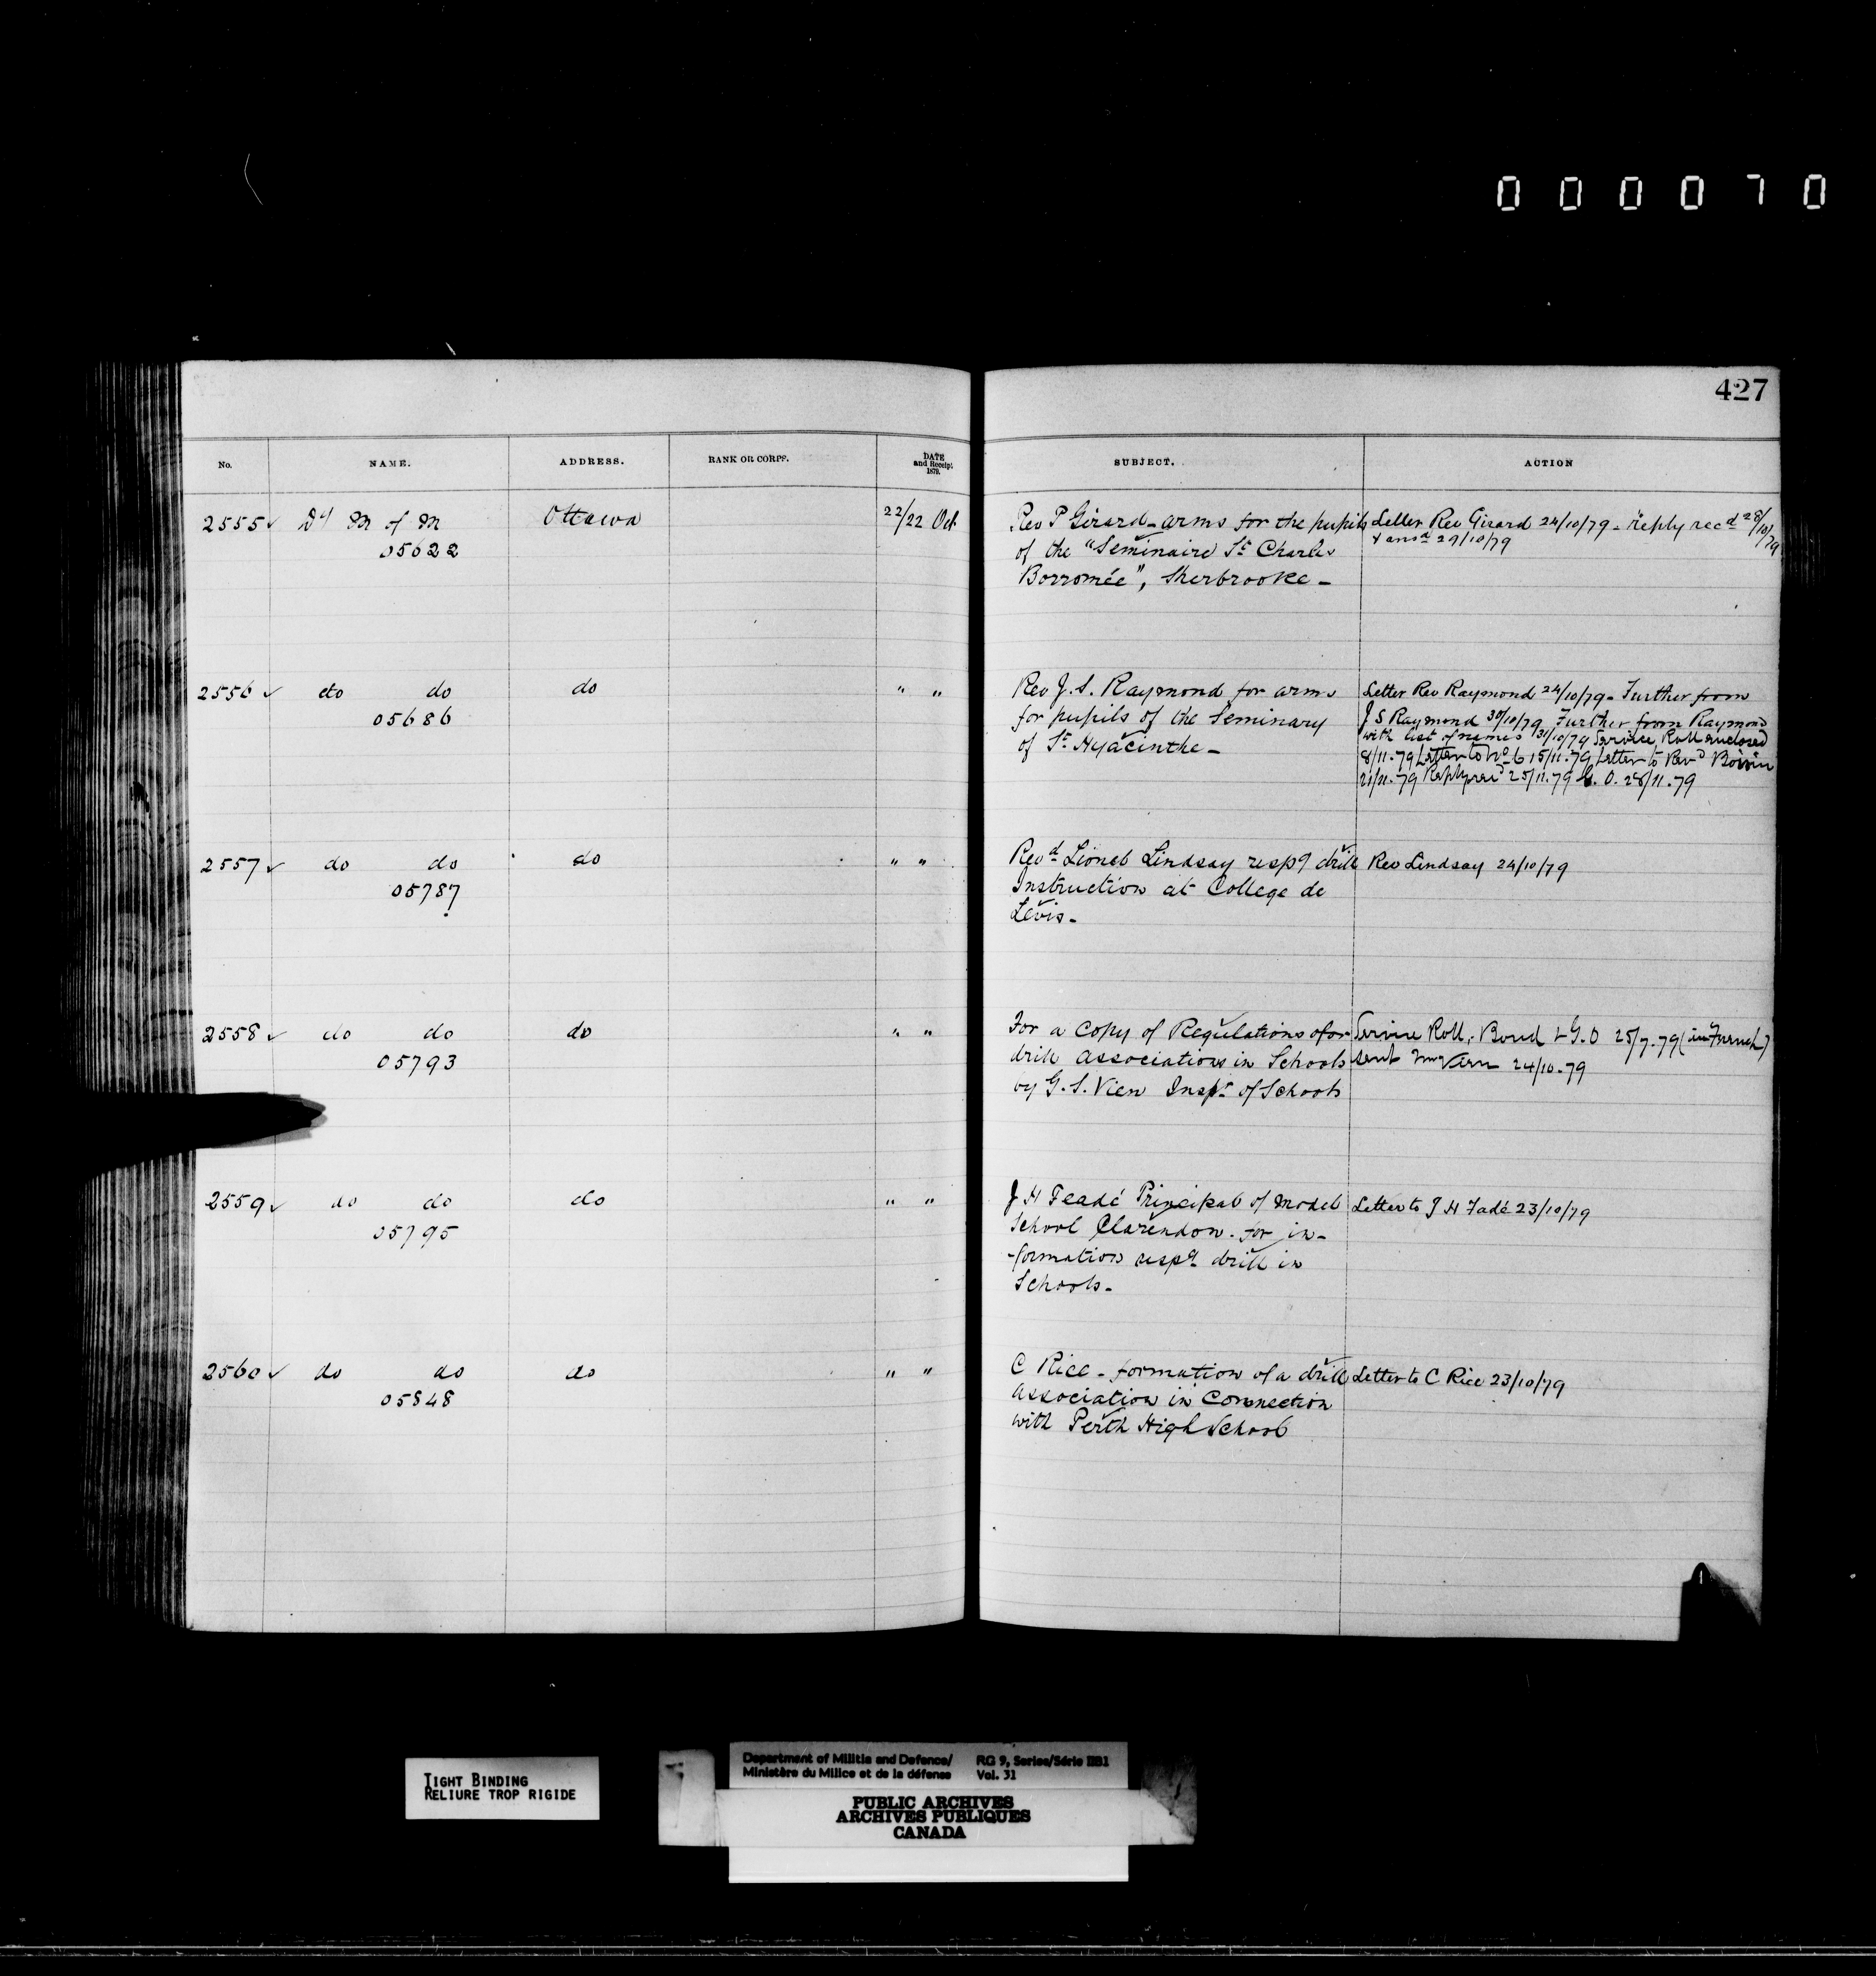 000070
427
No. NAME. ADDRESS. RANK OR CORPS. DATE and Receipt 1879. SUBJECT. ACTION
2555 ✓ Dy M of M Ottawa 22/22 Oct
05622
Rev P Girard - arms for the pupils
of the "Seminaire St Charles
Borromée", Sherbrooke -
Letter Rev Girard 24/10/79 - reply recd 28/10/79
& ansd 29/10/79
2556 ✓ do do do " "
05686
Rev J. S. Raymond for arms
for pupils of the Seminary
of St Hyacinthe -
Letter Rev Raymond 24/10/79 - Further from
J S Raymond 30/10/79 Further from Raymond
with list of names 31/10/79 Service Roll enclosed
8/11.79 Letter to No 6 15/11.79 Letter to Revd Boivin
21/11.79 Reply recd 25/11.79 G. O. 28/11.79
2557 ✓ do do do " "
05787
Revd Lionel Lindsay respg drill
Instruction at College de
Levis -
Rev Lindsay 24/10/79
2558 ✓ do do do " "
05793
For a copy of Regulations for
drill associations in Schools
by G. S. Vien Inspr of Schools
Service Roll, Bond & G.O 25/7.79 (in French)
sent 24/10.79
2559 ✓ do do do " "
05795
J H Feadé Principal of Model
School Clarendon. for in-
-formation respg drill in
Schools -
Letter to J H Fadé 23/10/79
2560 ✓ do do do " "
05848
C Rice - formation of a drill
association in connection
with Perth High School
Letter to C Rice 23/10/79
TIGHT BINDING
RELIURE TROP RIGIDE
Department of Militia and Defence/ RG 9, Series/Série IIB1
Ministère du Milice et de la défense Vol. 31
PUBLIC ARCHIVES
ARCHIVES PUBLIQUES
CANADA